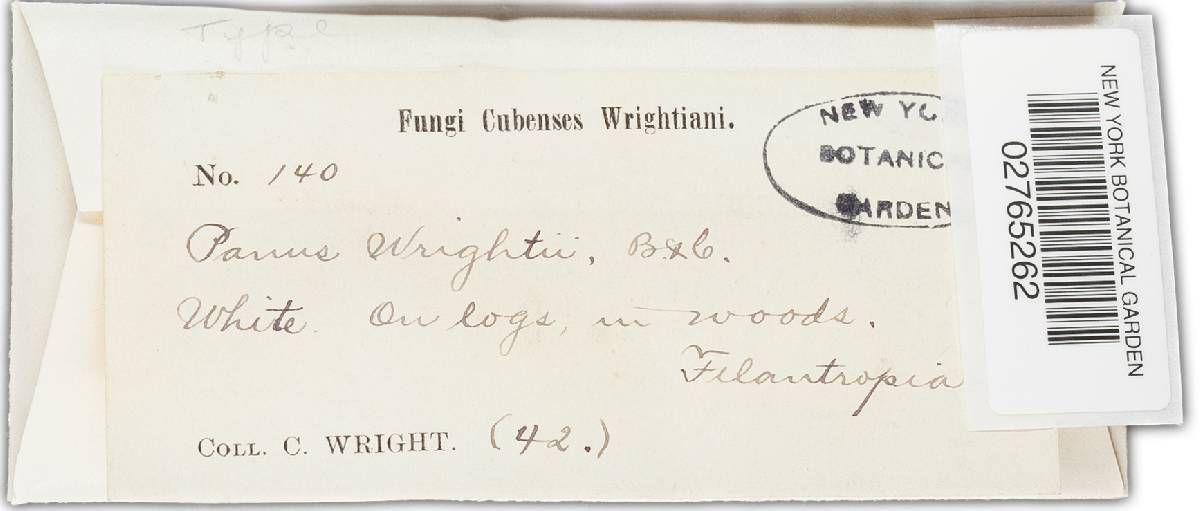 Type
Fungi Cubenses Wrightiani.
No. 140
Panus Wrightii, B.&C.
White. On logs, in woods.
Filantropia
COLL. C. WRIGHT. (42.)
NEW YO
BOTANIC
GARDEN
NEW YORK BOTANICAL GARDEN
02765262